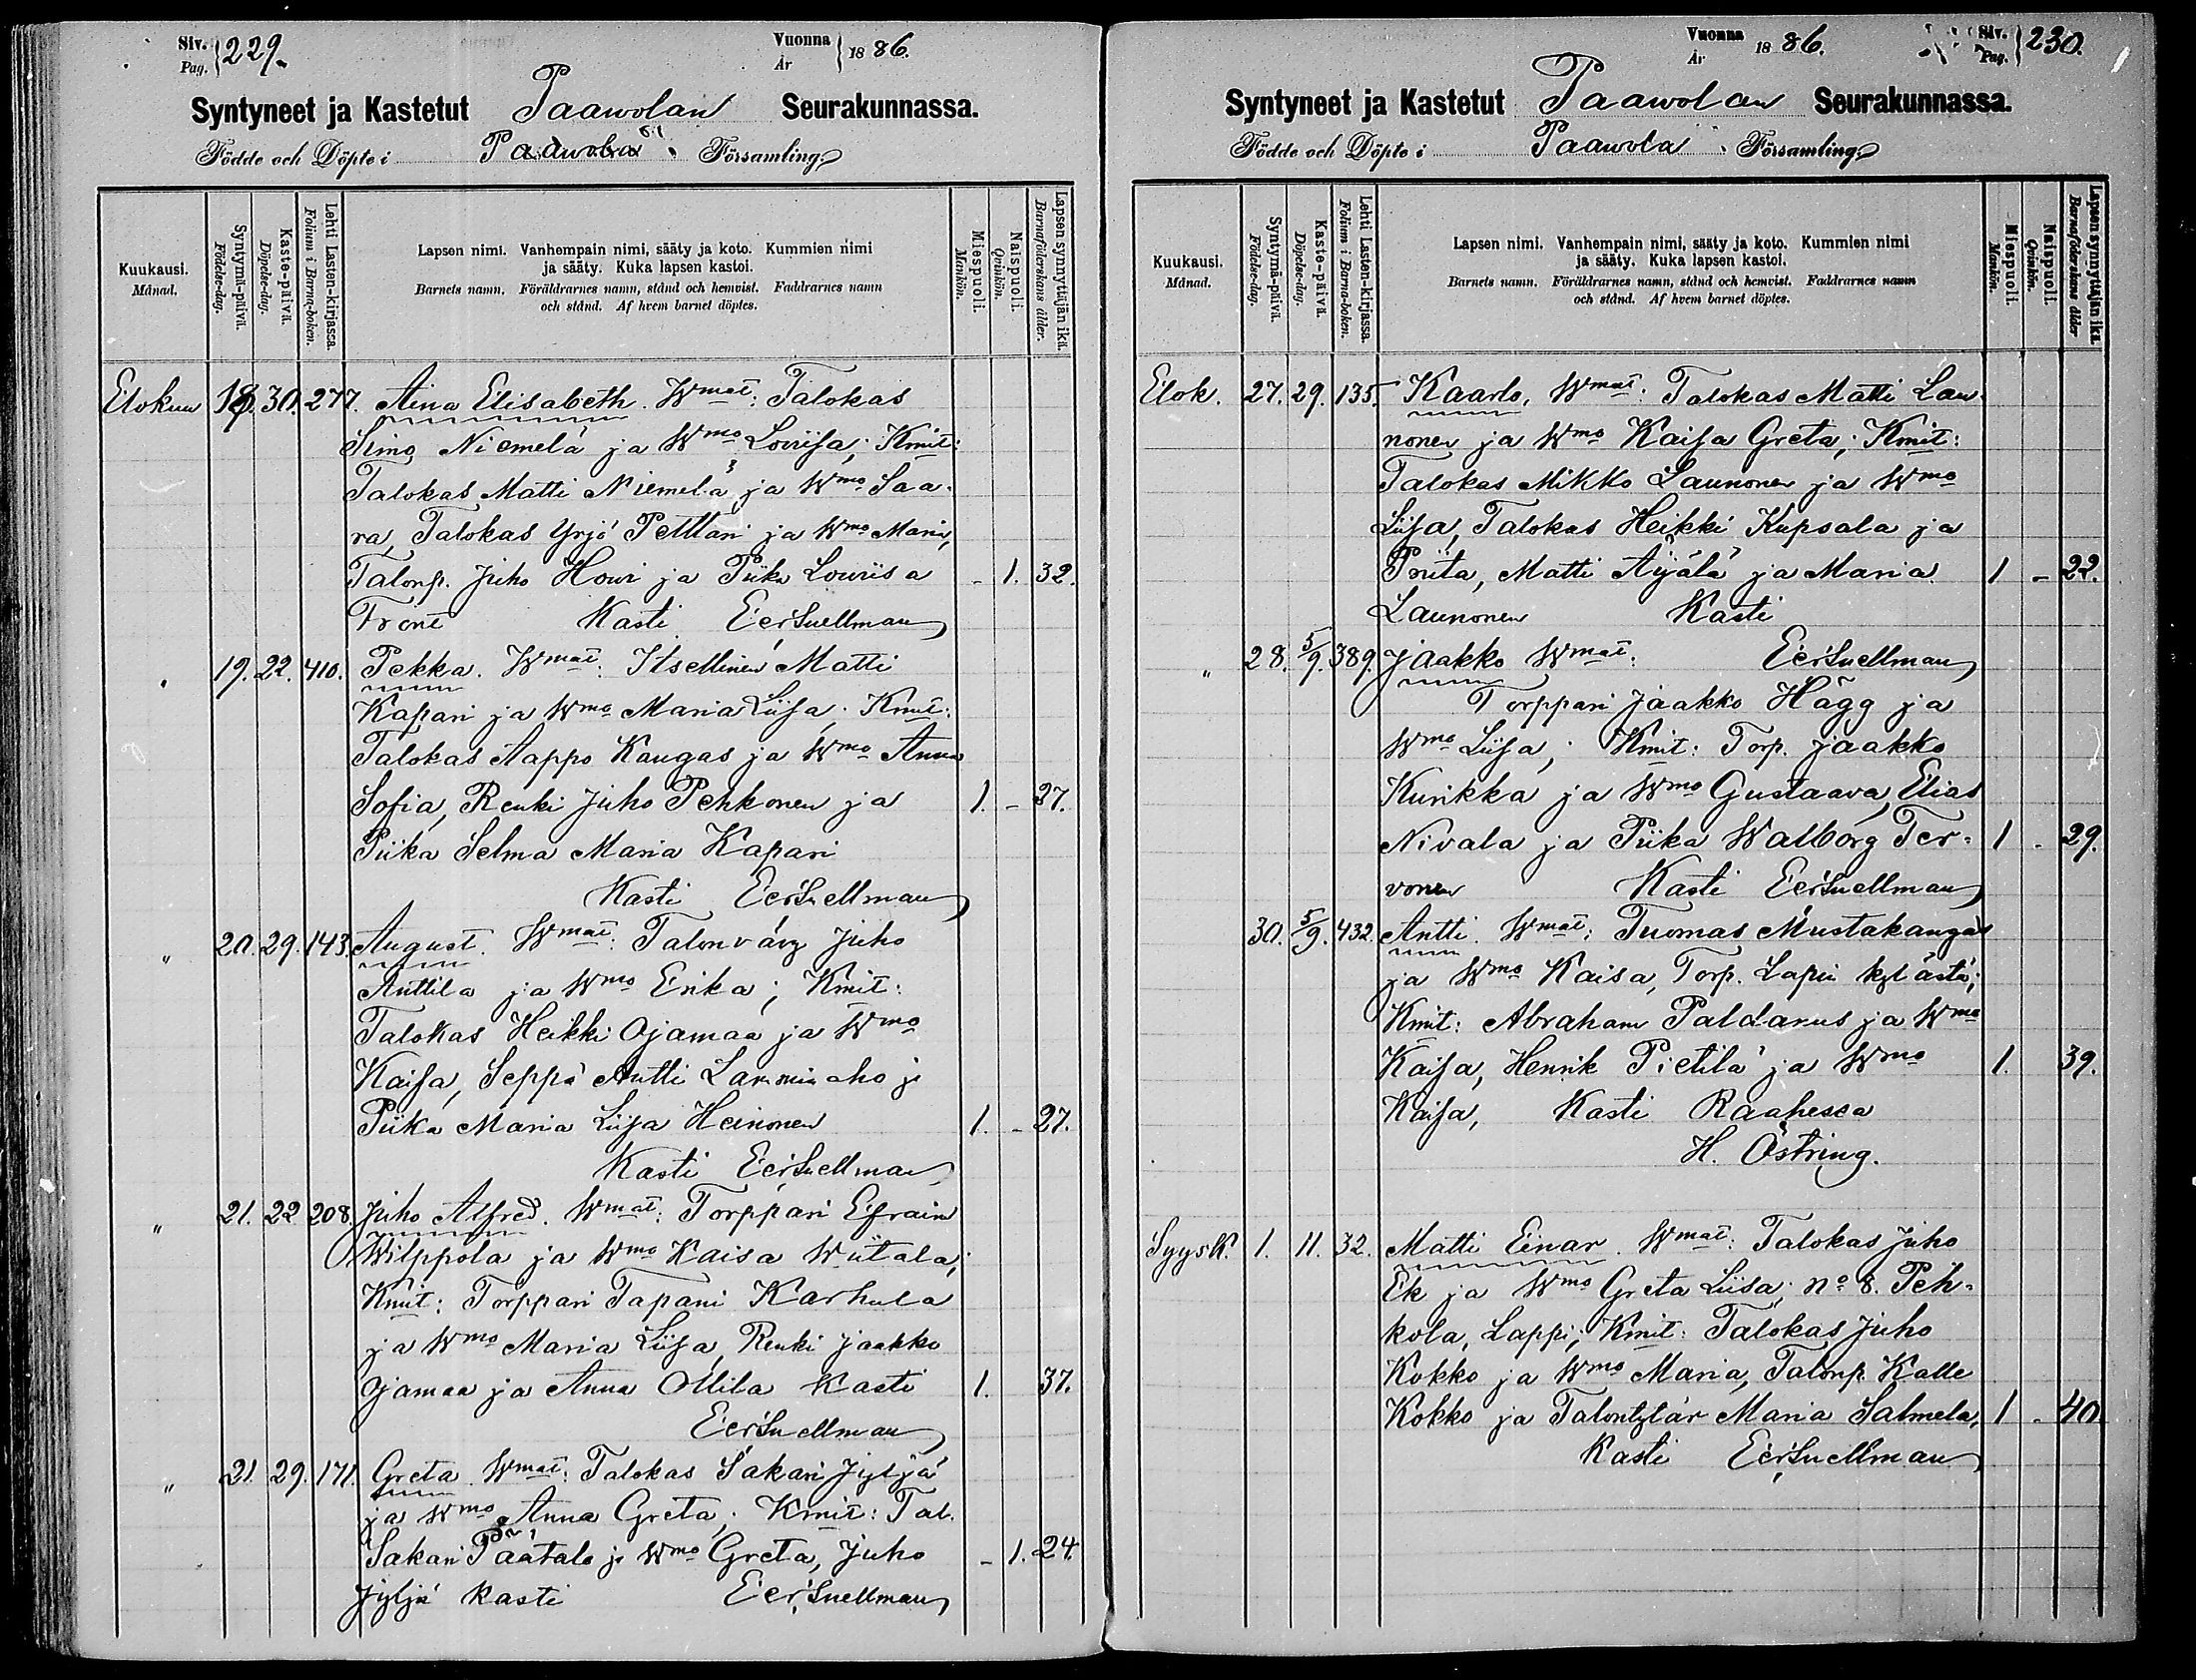 Siv. Pag. 229.
Vuonna År 1886.
Syntyneet ja Kastetut Paawolan Seurakunnassa.
Födde och Döpte i Paawola Församling.
Kuukausi. Månad.
Syntymä-päivä. Födelse-dag.
Kaste-päivä. Döpelse-dag.
Lehti Lasten-kirjassa. Folium i Barna-boken.
Lapsen nimi. Vanhempain nimi, sääty ja koto. Kummien nimi
ja sääty. Kuka lapsen kastoi.
Barnets namn. Föräldrarnes namn, stånd och hemvist. Faddrarnes namn
och stånd. Af hvem barnet döptes.
Miespuoli. Mankön.
Naispuoli. Qvinkön.
Lapsen synnyttäjän ikä. Barnaföderskans ålder.
Elokuu 18. 30. 277. Aina Elisabeth. Wmat: Talokas
Simo Niemelä ja Wmo Lovisa; Kmit:
Talokas Matti Niemelä ja Wmo Saa-
ra, Talokas Yrjö Pelttari ja Wmo Maria,
Talonp. Juho Howi ja Piika Lowiisa - 1. 32.
Front Kasti Eer Snellman
" 19. 22. 410. Pekka. Wmat: Itsellinen Matti
Kapari ja Wmo Maria Liisa; Kmit:
Talokas Aappo Kangas ja Wmo Anna
Sofia, Renki Juho Pehkonen ja 1. - 27.
Piika Selma Maria Kapari
Kasti Eer Snellman
" 20. 29. 143. August. Wmat: Talonväv Juho
Anttila ja Wmo Erika; Kmit:
Talokas Heikki Ojamaa ja Wmo
Kaisa, Seppä Antti Lamminaho ja
Piika Maria Liisa Heinonen 1. - 27.
Kasti Eer Snellman
" 21. 22 208. Juho Alfred. Wmat: Torppari Efraim
Wilppola ja Wmo Kaisa Wiitala;
Kmit: Torppari Tapani Karhula
ja Wmo Maria Liisa, Renki Jaakko
Ojamaa ja Anna Ollila Kasti 1. 37.
Eer Snellman
" 21. 29. 171. Greta. Wmat: Talokas Sakari Jyljä
ja Wmo Anna Greta; Kmit: Tal.
Sakari Päätalo ja Wmo Greta, Juho - 1. 24.
Jyljä Kasti Eer Snellman
Vuonna År 1886.
Siv. Pag. 230.
Syntyneet ja Kastetut Paawolan Seurakunnassa.
Födde och Döpte i Paawola Församling.
Kuukausi. Månad.
Syntymä-päivä. Födelse-dag.
Kaste-päivä. Döpelse-dag.
Lehti Lasten-kirjassa. Folium i Barna-boken.
Lapsen nimi. Vanhempain nimi, sääty ja koto. Kummien nimi
ja sääty. Kuka lapsen kastoi.
Barnets namn. Föräldrarnes namn, stånd och hemvist. Faddrarnes namn
och stånd. Af hvem barnet döptes.
Miespuoli. Mankön.
Naispuoli. Qvinkön.
Lapsen synnyttäjän ikä. Barnaföderskans ålder
Elok. 27. 29. 135. Kaarlo, Wmat: Talokas Matti Lau-
nonen ja Wmo Kaisa Greta; Kmit:
Talokas Mikko Launonen ja Wmo
Liisa, Talokas Heikki Kupsala ja
Priita, Matti Äijälä ja Maria 1 - 22.
Launonen Kasti
" 28. 5/9. 389. Jaakko Wmat: Eer Snellman
Torppari Jaakko Hägg ja
Wmo Liisa; Kmit: Torp. Jaakko
Kurikka ja Wmo Gustaava, Elias
Nivala ja Piika Walborg Ter- 1 - 29.
vonen Kasti Eer Snellman
30. 5/9. 432. Antti. Wmat: Tuomas Mustakangas
ja Wmo Kaisa, Torp. Lapin kylästä;
Kmit: Abraham Paldanus ja Wmo
Kaisa, Henrik Pietilä ja Wmo 1. 39.
Kaisa, Kasti Raahessa
H. Östring.
Syysk. 1. 11. 32. Matti Einar. Wmat: Talokas Juho
Ek ja Wmo Greta Liisa; No 8. Peh-
kola, Lappi; Kmit: Talokas Juho
Kokko ja Wmo Maria, Talonp. Kalle
Kokko ja Talontytär Maria Salmela, 1 - 40
Kasti Eer Snellman